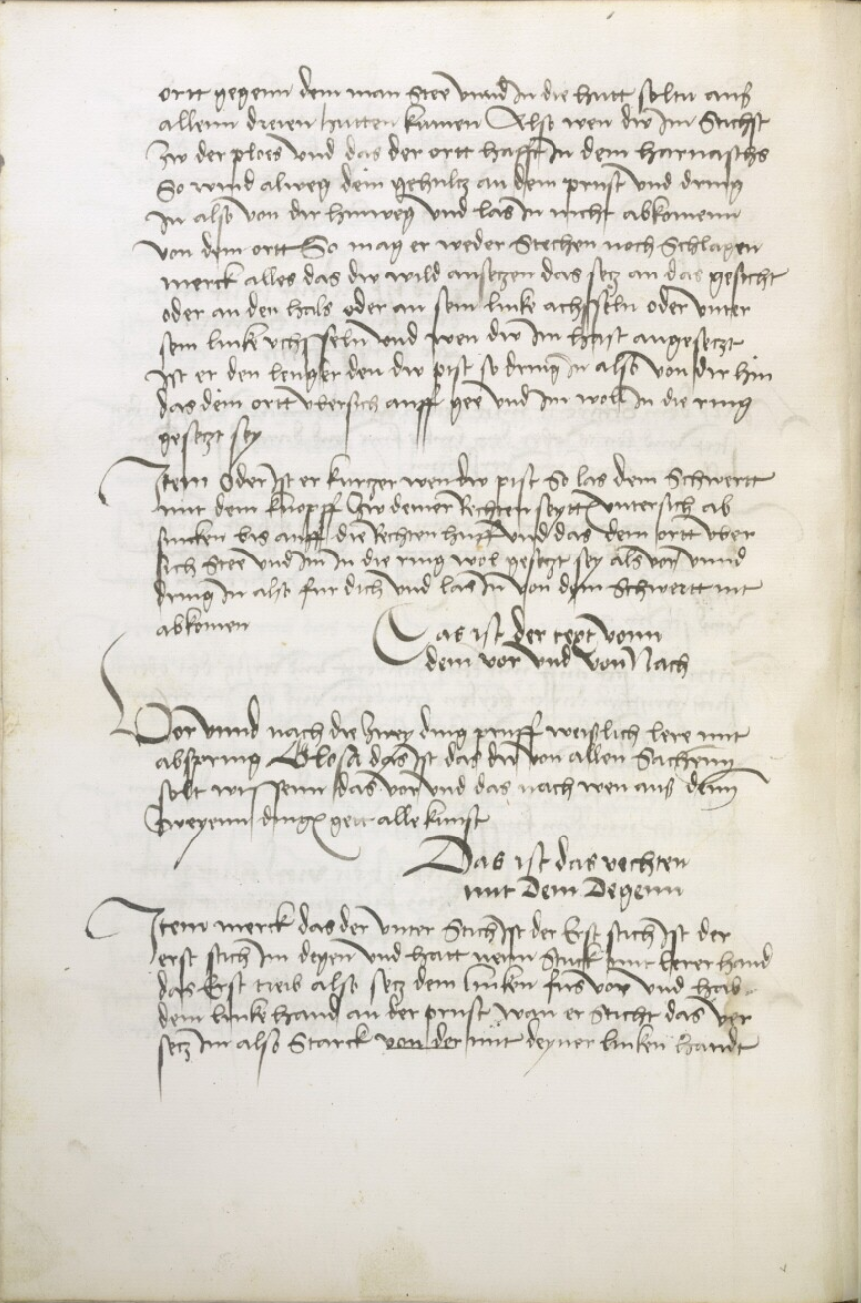 ortt gegenn dem man stee vnnd In die hutt soltu aus
allenn dreien hutten kumen Also wen dw Im Stichst
Zw der ploes vnd das der ortt hafft In dem harnaschs
So wind alweg dein gehultz an dein prust vnd dring
In also von dir hinweg vnd las In nicht abkomenn
von dem ortt So mag er weder Stechen noch Schlagen
merck alles das dw wild ansetzen das setz an das gesicht
oder an den hals oder an sein linke achsseln oder vnter
sein linke vchsseln vnd wen dw im hast angesetzt
Ist er den lenger den dw pist so dring In also von dir hin
das dein ortt vbersich auff gee vnd im woll In die ring
gesetzt sey
Item Oder Ist er kurtzer wen dw pist So las dein Schwertt
mit dem knopff Zw deiner Rechten seytt vntersich ab
sincken bis auff die Rechten huff vnd das dein ortt vber
sich stee vnd im In die ring wol gesetzt sey als vor vnnd
dring In also fur dich vnd las In von dem Schwertt nit
abkomen
Das ist der text vonn
dem vor vnd von Nach
Vor vnnd nach die Zwey ding pruff weislich lere mit
abspring Glosa das Ist das dw von allen Sachenn
solt wissenn das vor vnd das nach wen aus denn
Zweyenn ding gett alle kunst
Das ist das vechten
mit Dem Degenn
Item merck das der vnter Stich Ist der Erst stich Ist der
erst stich Im degen vnd hatt neun Stuck mit lerer hand
das Erst treib also setz dein lincken fus vor vnd hab
dein linke hand an der prust wan er Sticht das ver
setz im also Starck von der mit deyner lincken handt